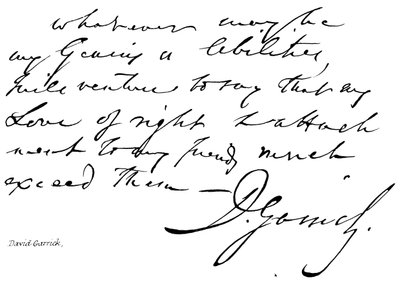 whatever may be
my Genius or Abilities,
I will venture to say that my
Love of right & attach
ment to my friends much
exceed them —
D. Garrick.
David Garrick,